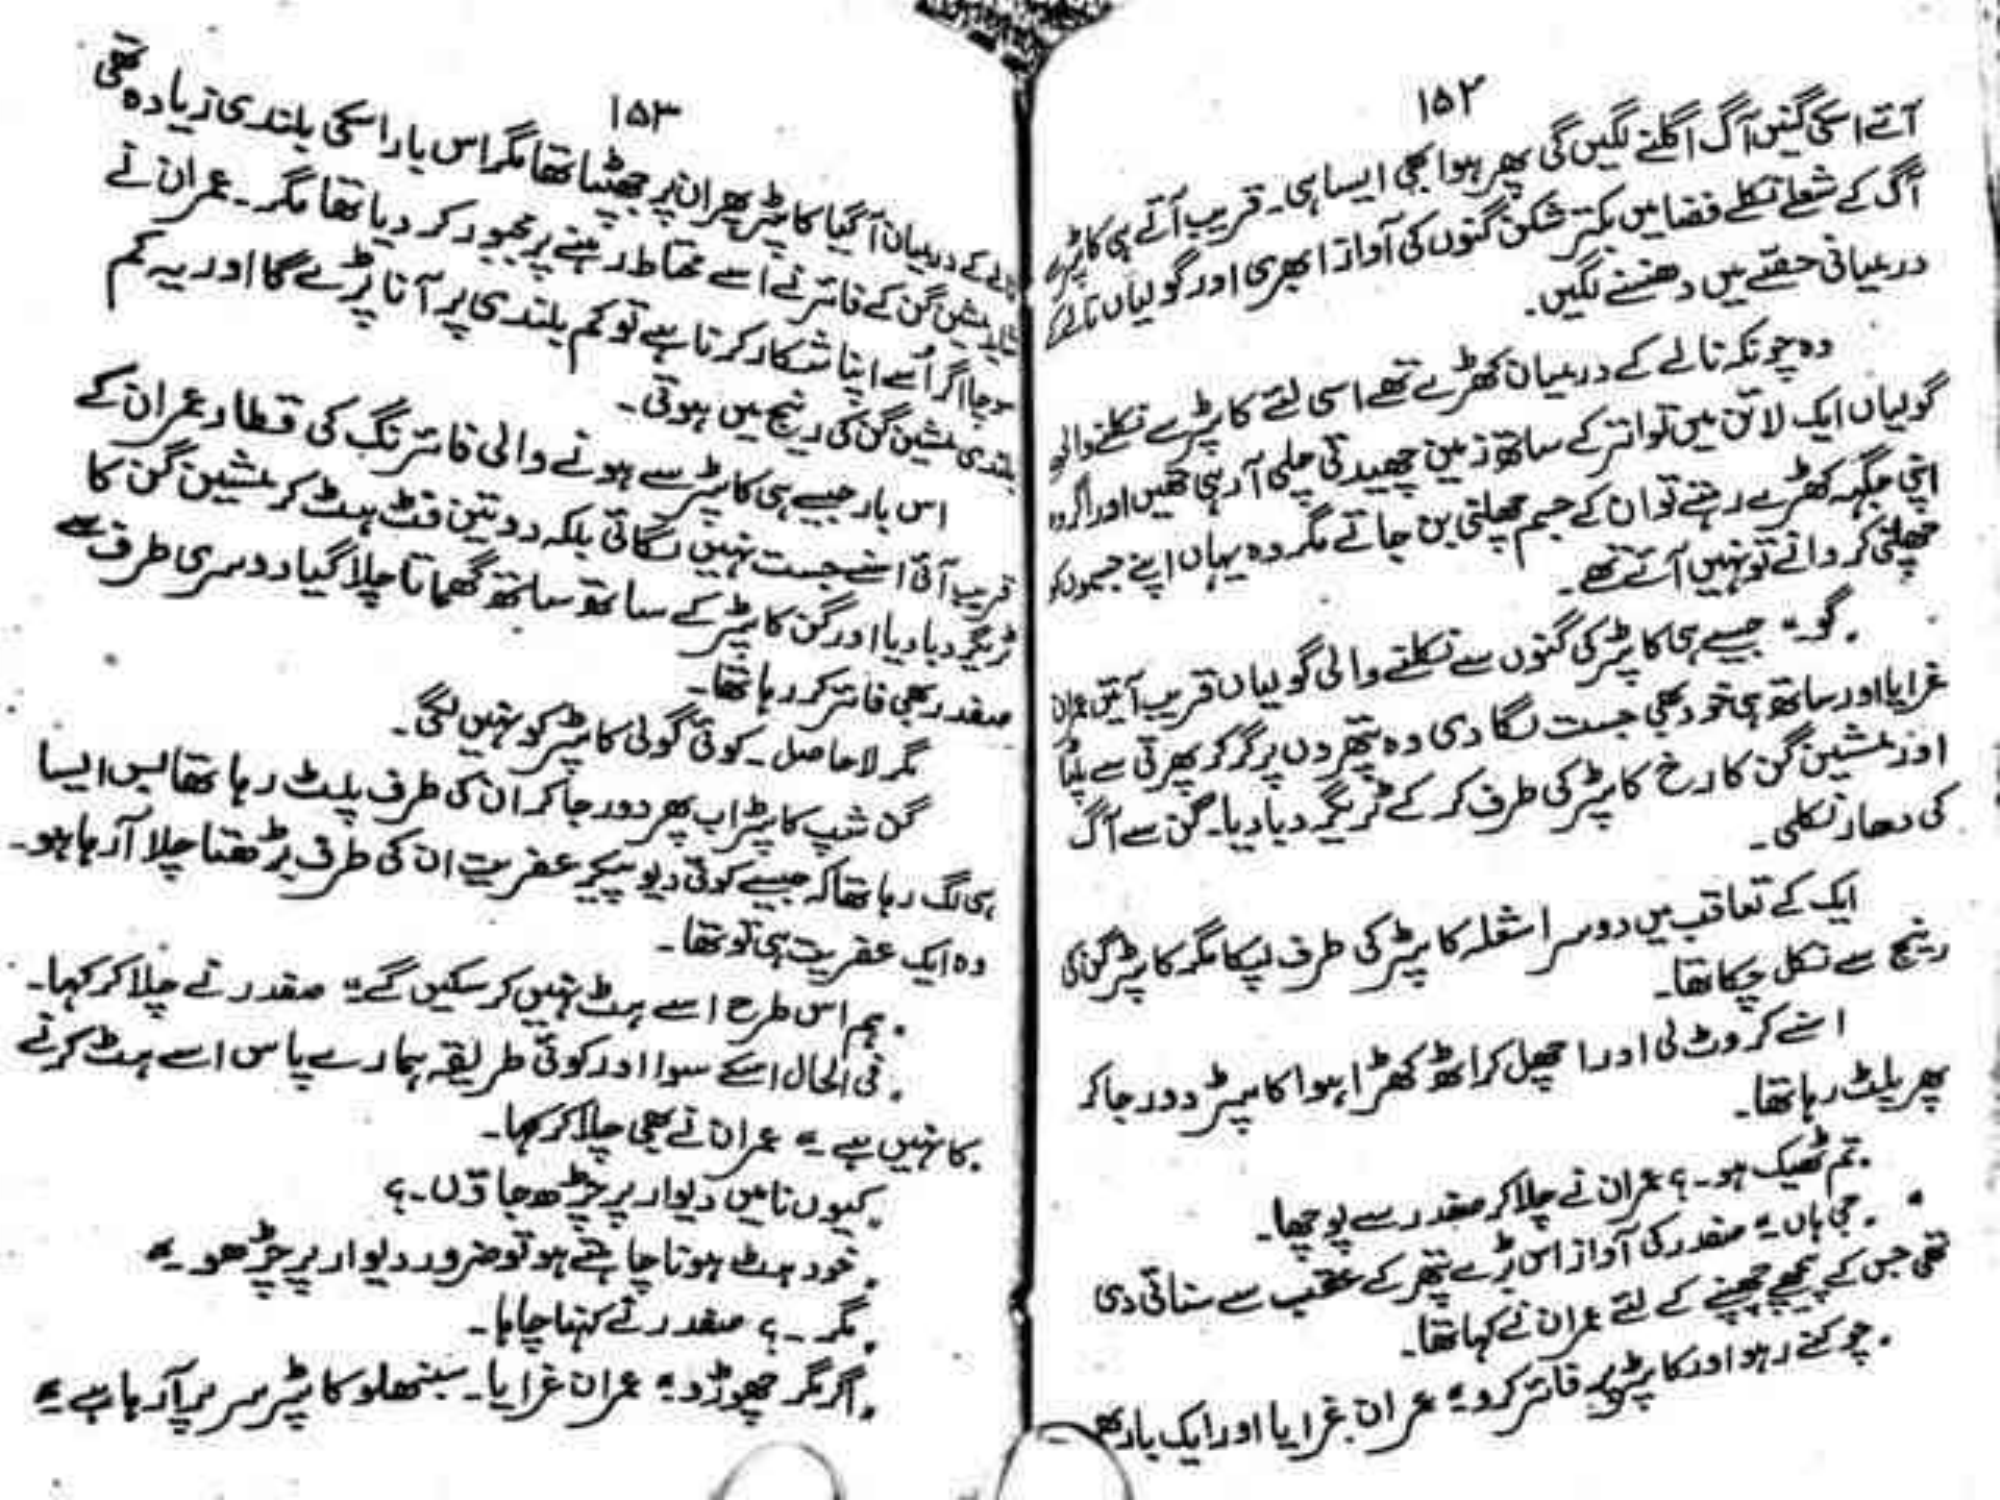 ۱۵۲
آتے اسکی گنیں آگ اگلنے لگیں گی پھر ہوا بھی ایسا ہی۔ قریب آتے ہی کاپٹر سے
آگ کے شعلے نکلے فضا میں بکتر شکن گنوں کی آواز ابھری اور گولیاں نالے کے
درمیانی حصے میں دھنسنے لگیں۔
وہ چونکہ نالے کے درمیان کھڑے تھے اسی لئے کاپٹر سے نکلنے والی
گولیاں ایک لائن میں تواتر کے ساتھ زمین چھیدتی چلی آ رہی تھیں اور اگر وہ
اپنی جگہہ کھڑے رہتے تو ان کے جسم چھلنی بن جاتے مگر وہ یہاں اپنے جسموں کو
چھلنی کروانے تو نہیں آئے تھے۔
"گو۔" جیسے ہی کاپٹر کی گنوں سے نکلنے والی گولیاں قریب آئیں عمران
غرایا اور ساتھ ہی خود بھی جست لگا دی وہ پتھروں پر گر کر پھرتی سے پلٹا
اور مشین گن کا رخ کاپٹر کی طرف کر کے ٹریگر دبا دیا۔ گن سے آگ
کی دھار نکلی۔
ایک کے تعاقب میں دوسرا شعلہ کاپٹر کی طرف لپکا مگر کاپٹر گن کی
رینج سے نکل چکا تھا۔
اسنے کروٹ لی اور اچھل کر اٹھ کھڑا ہوا کاپٹر دور جا کر
پھر پلٹ رہا تھا۔
"تم ٹھیک ہو۔؟ عمران نے چلا کر صفدر سے پوچھا۔
"جی ہاں" صفدر کی آواز اس بڑے پتھر کے عقب سے سنائی دی
تھی جس کے پیچھے چھپنے کے لئے عمران نے کہا تھا۔
"چوکنے رہو اور کاپٹر پر فائر کرو" عمران غرایا اور ایک بار پھر
۱۵۳
نالے کے درمیان آ گیا کاپٹر پھر ان پر جھپٹا تھا مگر اس بار اسکی بلندی زیادہ تھی
شاید مشین گن کے فائر نے اسے محتاط رہنے پر مجبور کر دیا تھا مگر۔ عمران نے
سوچا اگر اُسے اپنا شکار کرنا ہے تو کم بلندی پر آنا پڑے گا اور یہ کم
بلندی مشین گن کی رینج میں ہوتی۔
اس بار جیسے ہی کاپٹر سے ہونے والی فائرنگ کی قطار عمران کے
قریب آئی اسنے جست نہیں لگائی بلکہ دو تین فٹ ہٹ کر مشین گن کا
ٹریگر دبا دیا اور گن کاپٹر کے ساتھ ساتھ گھماتا چلا گیا دوسری طرف سے
صفدر بھی فائر کر رہا تھا۔
مگر لاحاصل۔ کوئی گولی کاپٹر کو نہیں لگی۔
گن شپ کاپٹر اب پھر دور جا کر ان کی طرف پلٹ رہا تھا بس ایسا
ہی لگ رہا تھا کہ جیسے کوئی دیو پیکر عفریت ان کی طرف بڑھتا چلا آ رہا ہو۔
وہ ایک عفریت ہی تو تھا۔
"ہم اس طرح اسے ہٹ نہیں کر سکیں گے" صفدر نے چلا کر کہا۔
"فی الحال اسکے سوا اور کوئی طریقہ ہمارے پاس اسے ہٹ کرنے
کا نہیں ہے۔" عمران نے بھی چلا کر کہا۔
"کیوں نا میں دیوار پر چڑھ جاؤں۔؟
"خود ہٹ ہونا چاہتے ہو تو ضرور دیوار پر چڑھو۔"
"مگر۔؟ صفدر نے کہنا چاہا۔
"اگر مگر چھوڑو" عمران غرایا۔ سنبھلو کاپٹر سر پر آ رہا ہے۔"